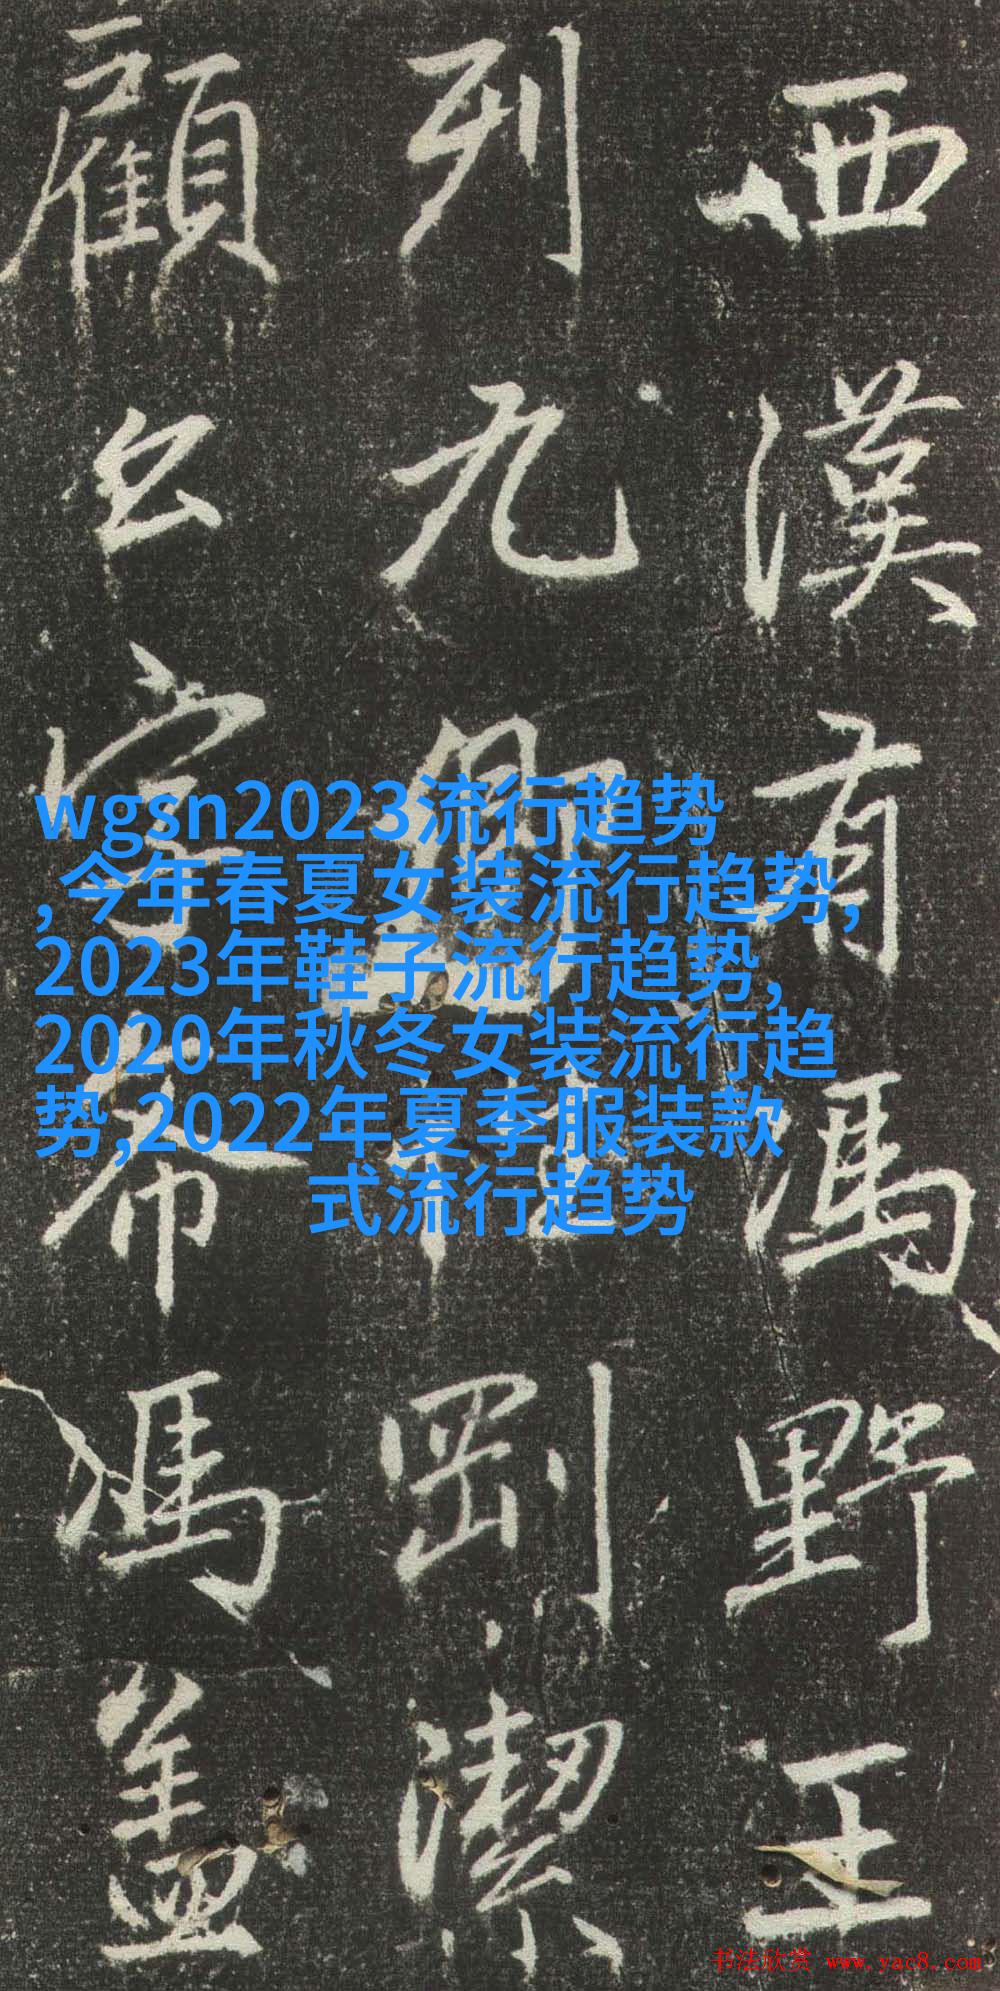 西漢有馮野王
列九卿剛潔
顧公字希馮盖
wgsn2023流行趋势
,今年春夏女装流行趋势,
2023年鞋子流行趋势,
2020年秋冬女装流行趋
势,2022年夏季服装款
式流行趋势
书法欣赏 www.yac8.com